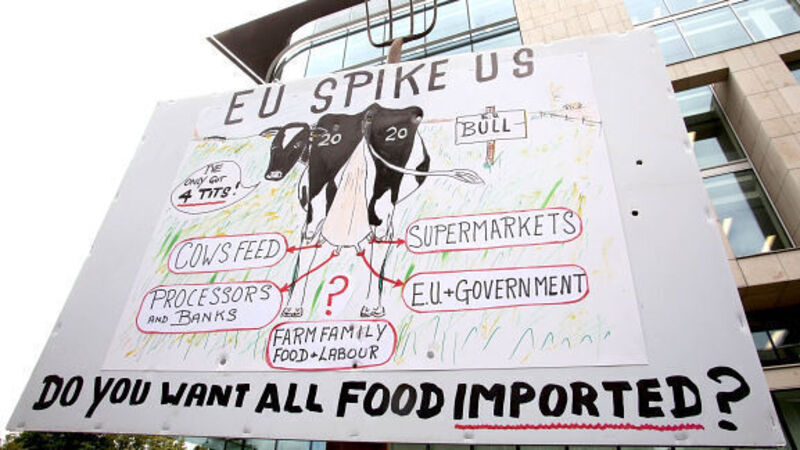 EU SPIKE US
20 20
BULL
I'VE
ONLY GOT
4 TITS!
COWS FEED
SUPERMARKETS
PROCESSORS
AND BANKS
E.U. + GOVERNMENT
?
FARM FAMILY
FOOD + LABOUR
DO YOU WANT ALL FOOD IMPORTED?